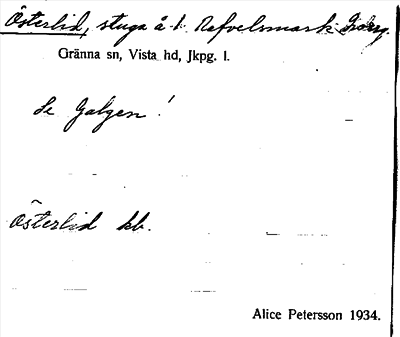 Österlid, stuga å 1 Rafvelsmark
Gränna sn, Vista hd, Jkpg. l.
Se Galgen!
Österlid kb.
Alice Petersson 1934.